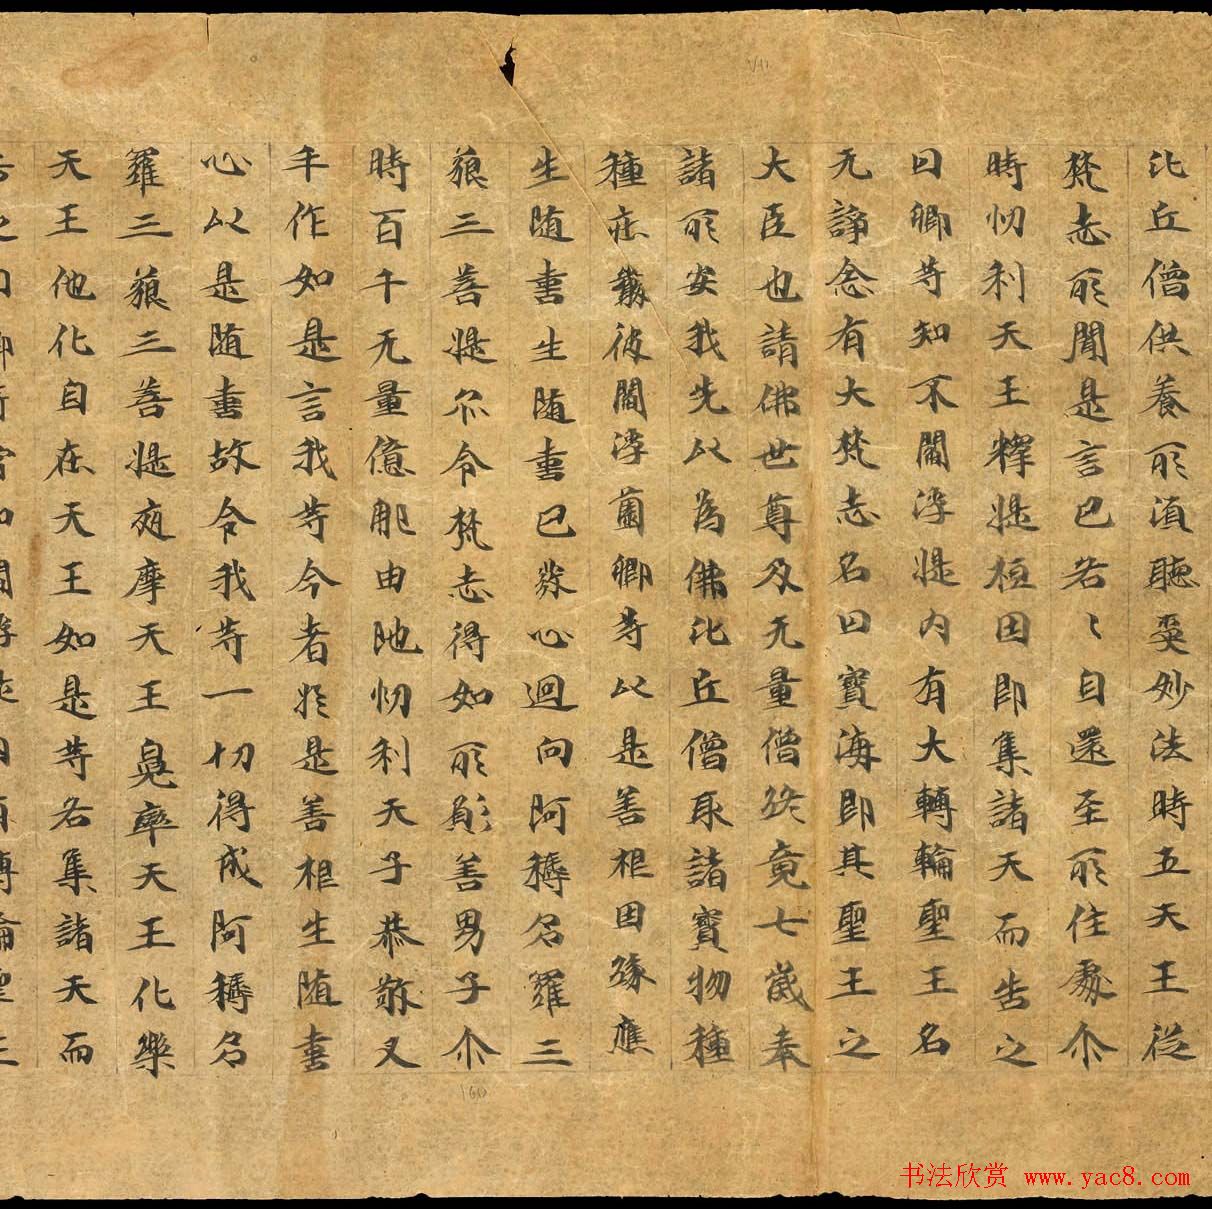 比丘僧供養所湏聽受妙法時五天王從
梵志所聞是言已各〻自還至所住處尒
時忉利天王釋提桓因即集諸天而告之
曰卿等知不閻浮提内有大轉輪聖王名
无諍念有大梵志名曰寶海即其聖王之
大臣也請佛世尊及无量僧終竟七歲奉
諸所安我先以為佛比丘僧取諸寶物種
種莊嚴彼閻浮薗卿等以是善根因緣應
生随喜生随喜已發心迴向阿耨多羅三
藐三菩提尒令梵志得如所願善男子尒
時百千无量億那由他忉利天子恭敬叉
手作如是言我等今者於是善根生随喜
心以是随喜故令我等一切得成阿耨多
羅三藐三菩提夜摩天王兜率天王化樂
天王他化自在天王如是等各集諸天而
書法欣赏 www.yac8.com